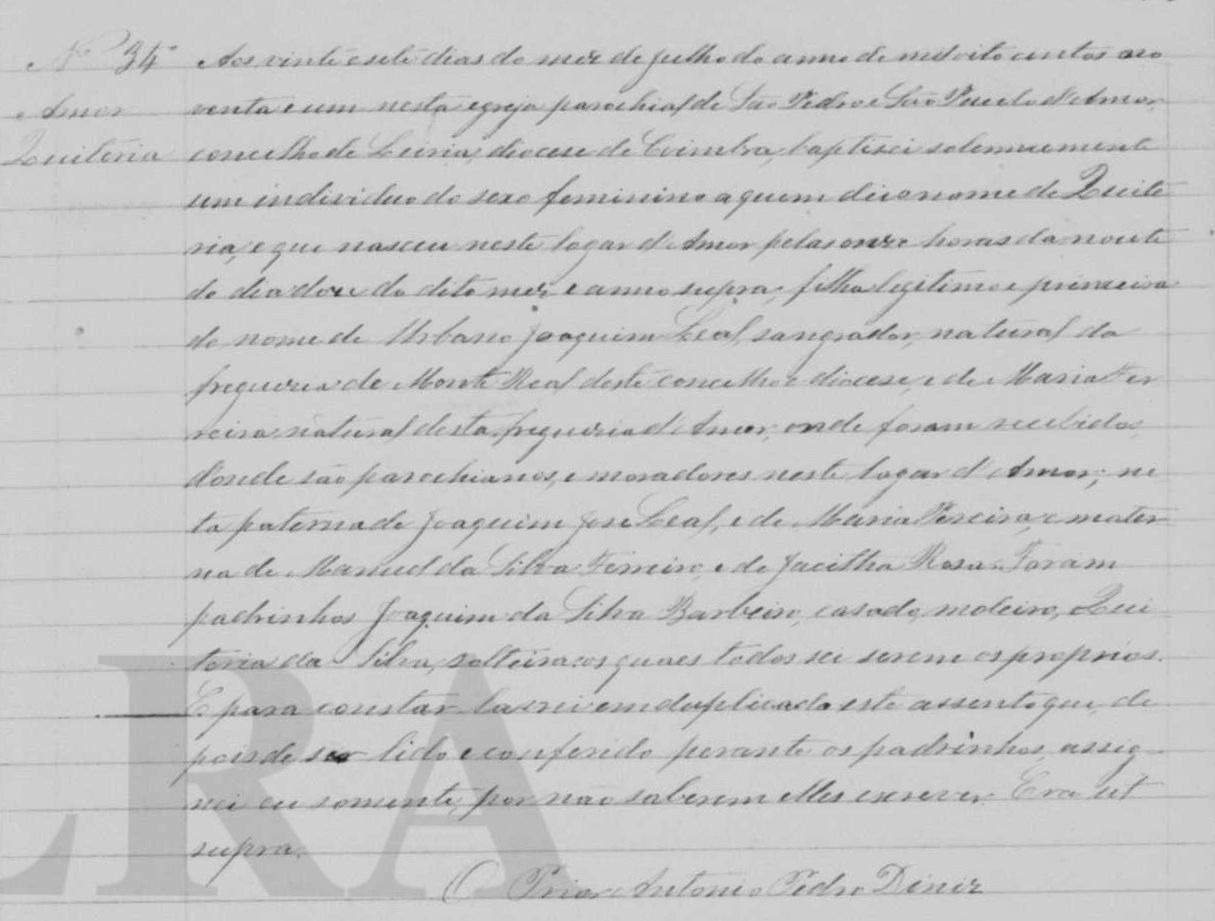 Nº 34 Aos vinte e sete dias do mez de Julho do anno de mil oito centos no
Amor venta e um nesta egreja parochial de São Pedro e São Paulo d'Amor,
Quiteria concelho de Leiria, diocese de Coimbra, baptisei solemnemente
um individuo do sexo feminino a quem dei o nome de Quite
ria, e que nasceu neste logar d'Amor pelas onze horas da noute
do dia doze do dito mez e anno supra, filha legitima e primeira
do nome de Urbano Joaquim Leal, sangrador, natural da
freguezia de Monte Real deste concelho e diocese, e de Maria Fer
reira natural desta freguezia d'Amor, onde foram recebidos,
d'onde são parochianos, e moradores neste logar d'Amor; ne
ta paterna de Joaquim José Leal, e de Maria Pereira, e mater
na de Manuel da Silva Ferreiro, e de Jacintha Rosa. Foram
padrinhos Joaquim da Silva Barbeiro, casado, moleiro, Qui
teria da Silva, solteira, os quaes todos sei serem os proprios.
E para constar lavrei em duplicado este assento que, de
pois de ser lido e conferido perante os padrinhos, assig-
nei eu somente, por não saberem elles escrever. Era ut
supra.
O Prior Antonio Pedro Diniz
LRA